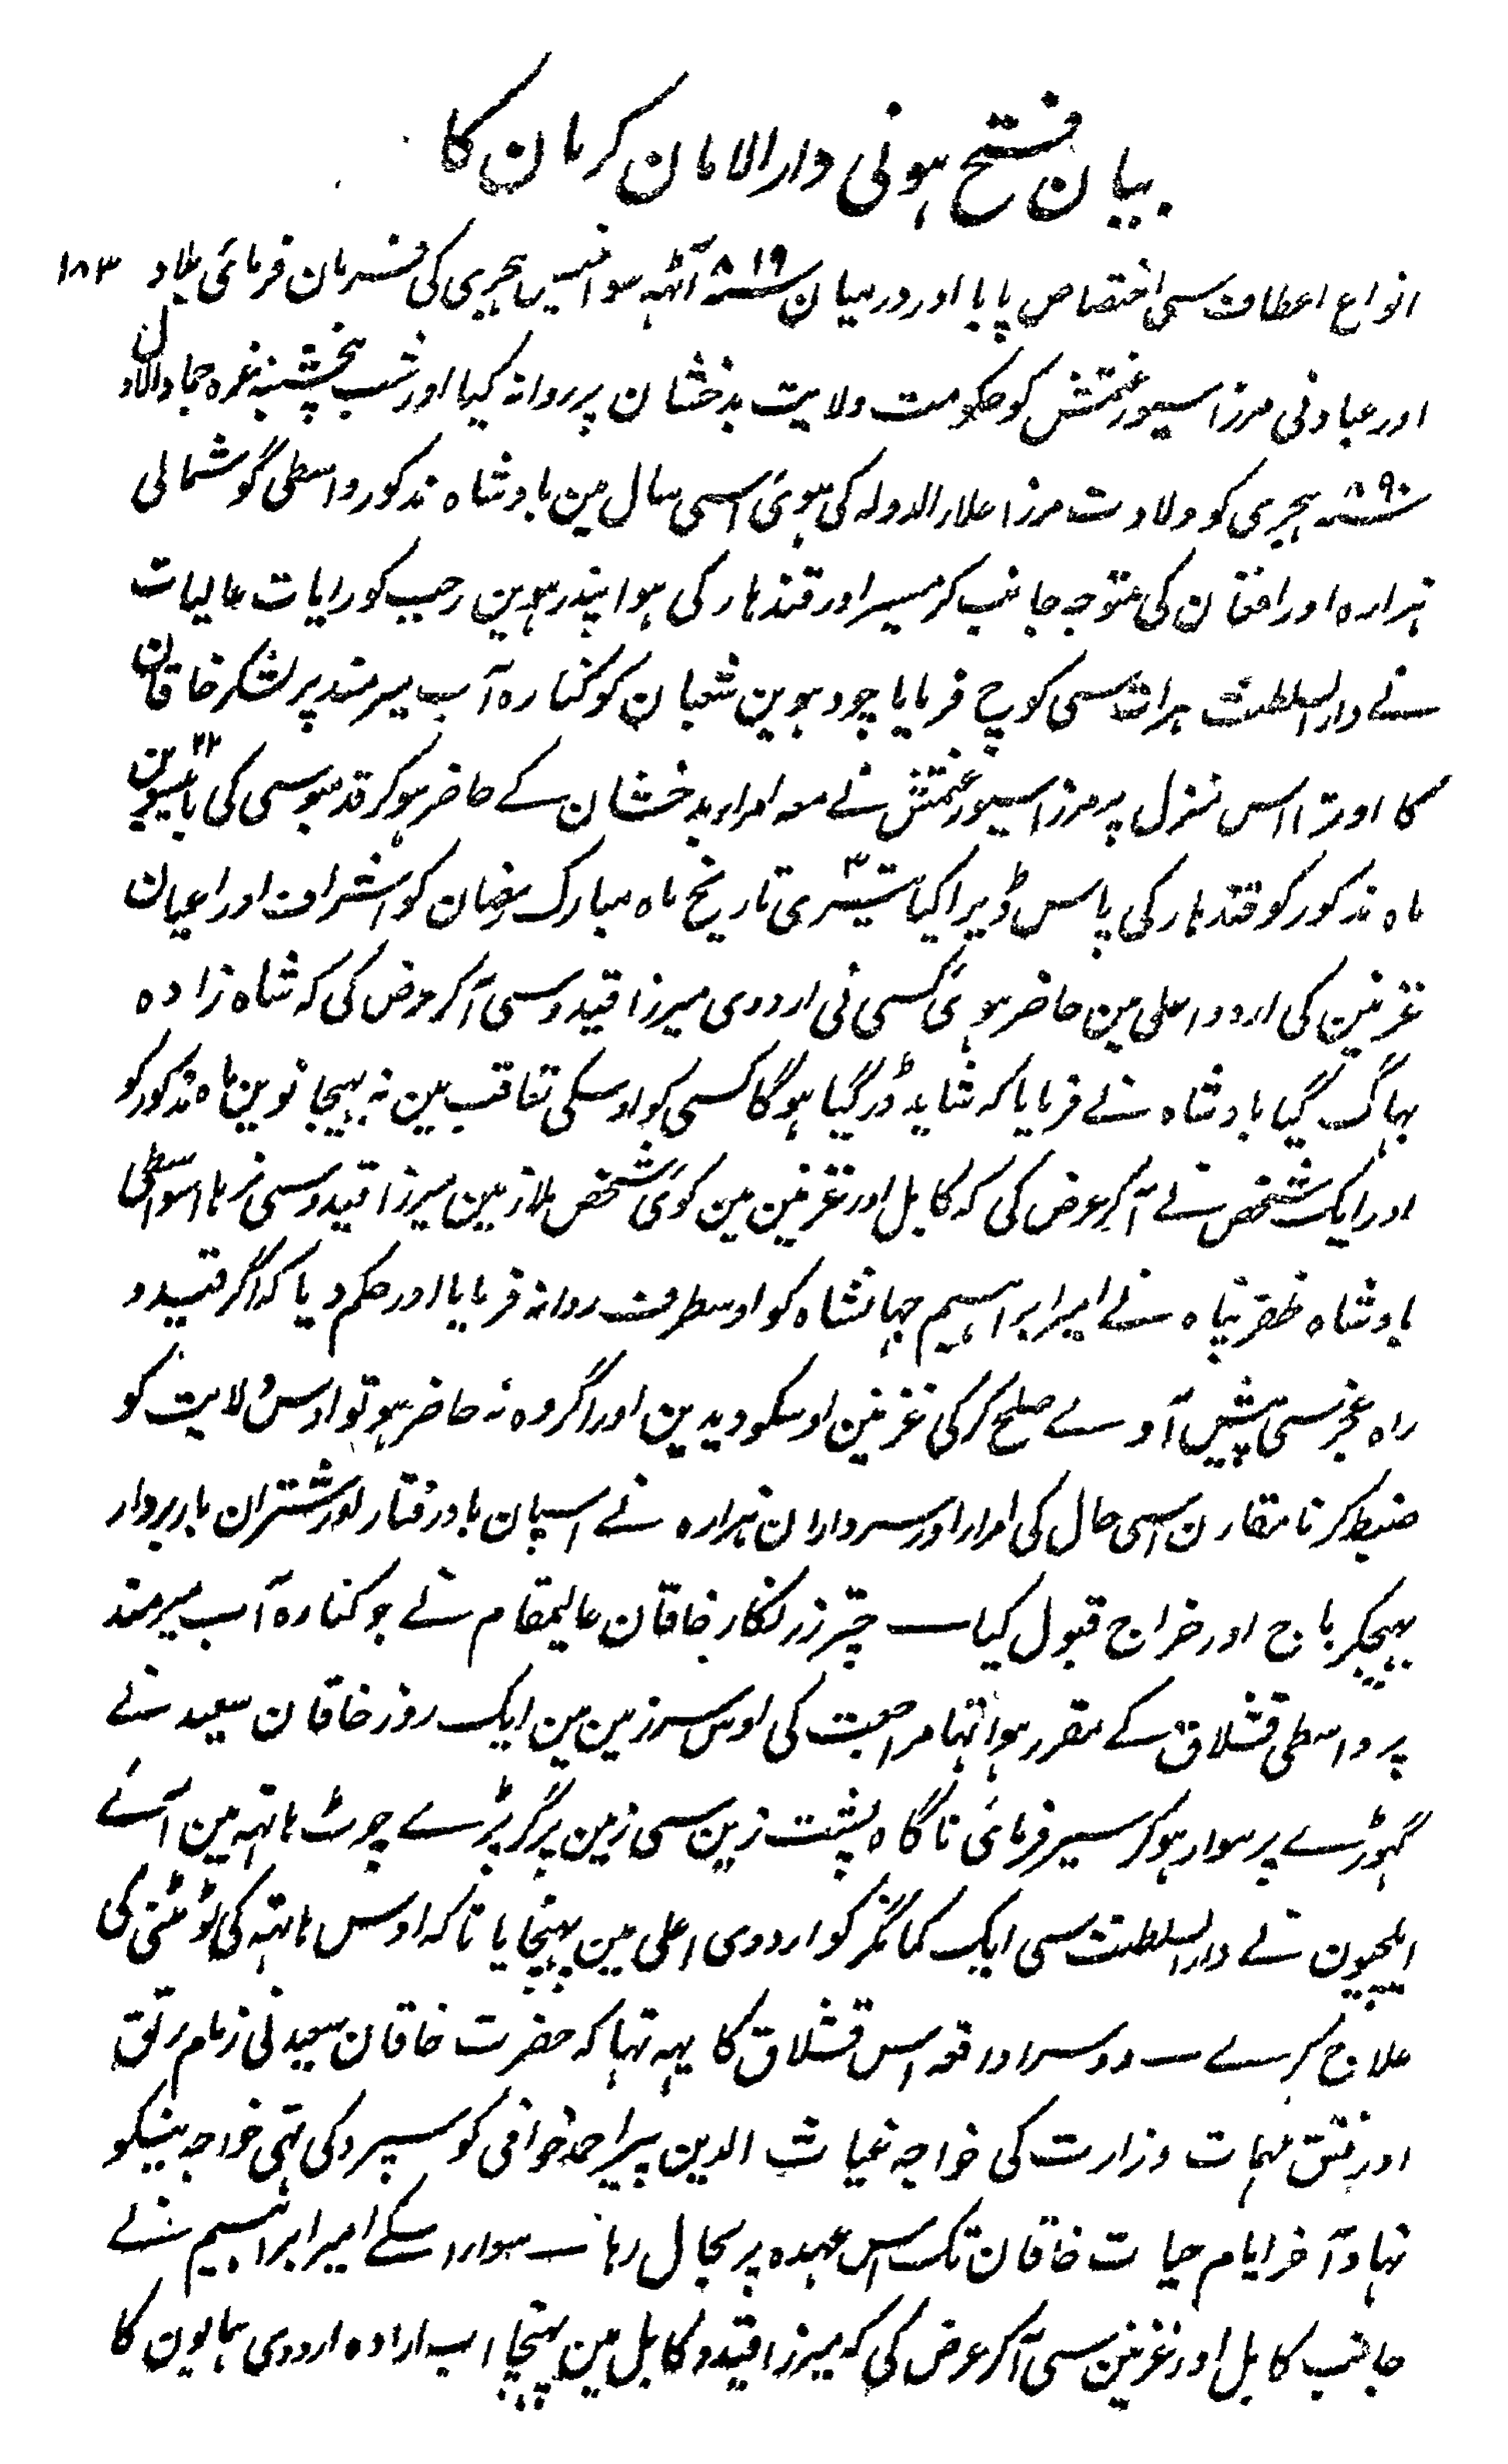 بیان فتح ہونی دارالامان کرمان کا
۱۸۳
انواع اعطاف سی اختصاص پایا اور درمیان ۸۱۹ سنہ آٹھہ سو انیس ہجری کی فرمان فرمائی بلاد
اور عباد نی مرزا سیورغتمش کو حکومت ولایت بدخشان پر روانہ کیا اور شب پنجشنبہ غرہ جمادالاول
۸۹۰ سنہ ہجری کو ولادت مرزا علاءالدولہ کی ہوئ اسی سال مین بادشاہ مذکور واسطی گوشمالی
ہزارہ اور افغان کی متوجہ جانب کرمسیر اور قندہار کی ہوا پندرہوین رجب کو رایات عالیات
نے دارالسلطنت ہرات سی کوچ فرمایا چودہوین شعبان کو کنارہ آب ہیرمند پر لشکر خاقان
کا اوترا اس منزل پر مرزا سیورغتمش نے معہ امراء بدخشان کے حاضر ہوکر قدمبوسی کی بائیسوین ۲۲
ماہ مذکور کو قندہار کی پاس ڈیرا کیا تیسری ۳ تاریخ ماہ مبارک رمضان کو اشراف اور اعیان
غزنین کی اردو اعلی مین حاضر ہوئ کسی نی اردوی میرزا قیدو سی آکر عرض کی کہ شاہ زادہ
بہاگ گیا بادشاہ نے فرمایا کہ شاید ڈر گیا ہوگا کسی کو اوسکی تعاقب مین نہ بہیجا نوین ماہ مذکور کو
اور ایک شخص نے آکر عرض کی کہ کابل اور غزنین مین کوئ شخص ملازمین میرزا قیدو سی نرہا اسواسطی
بادشاہ ظفرپناہ نے امیر ابراہیم جہانشاہ کو اوسطرف روانہ فرمایا اور حکم دیا کہ اگر قیدو
راہ عجز سی پیش آوے صلح کرکی غزنین اوسکو دیدین اور اگر وہ نہ حاضر ہو تو اوس ولایت کو
ضبط کرنا مقارن اسی حال کی امرا اور سرداران ہزارہ نے اسپان بادرفتار اور شتران باربردار
بہیجکر باج اور خراج قبول کیا چتر زرنگار خاقان عالیمقام نے جو کنارہ آب ہیرمند
پر واسطی قشلاق کے مقرر ہوا تہا مراجعت کی اوس سرزمین مین ایک روز خاقان سعید نے
گہوڑے پر سوار ہوکر سیر فرمائ ناگاہ پشت زین سی زمین پر گر پڑے چوٹ ہاتہہ مین آئے
ایلچیون نے دارالسلطنت سی ایک کمانگر کو اردوی اعلی مین پہنچایا تاکہ اوس ہاتہہ کی ٹوٹنی کی
علاج کرے دوسرا واقعہ اس قشلاق کا یہہ تہا کہ حضرت خاقان سعید نی زمام رتق
اور فتق مہمات وزارت کی خواجہ غیاث الدین پیر احمد خوافی کو سپرد کی تہی خواجہ نیکو
نہاد آخر ایام حیات خاقان تک اس عہدہ پر بحال رہا سوا اسکے امیر ابراہیم نے
جانب کابل اور غزنین سی آکر عرض کی کہ میرزا قیدو کابل مین پہنچا اب ارادہ اردوی ہمایون کا